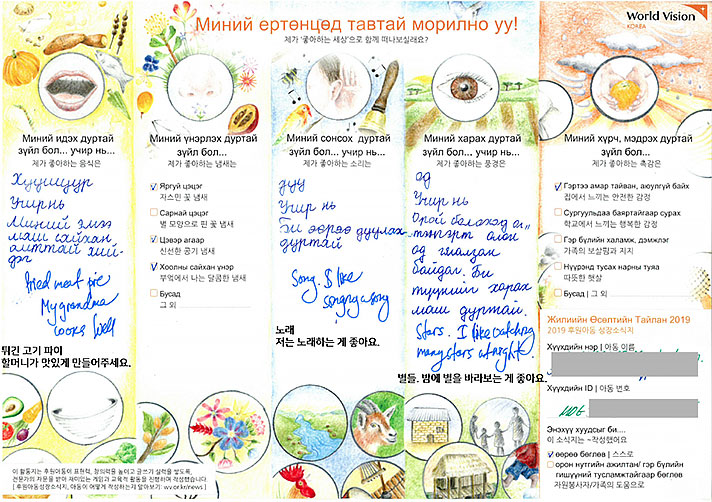 Миний ертөнцөд тавтай морилно уу!
제가 '좋아하는 세상'으로 함께 떠나보실래요?
World Vision
KOREA
Миний идэх дуртай
зүйл бол... учир нь...
제가 좋아하는 음식은
Хуушуур
Учир нь
Миний эмээ
маш сайхан
амттай хийдэг
fried meat pie
My grandma
cooks well
튀긴 고기 파이
할머니가 맛있게 만들어주세요.
Миний үнэрлэх дуртай
зүйл бол...
제가 좋아하는 냄새는
Яргуй цэцэг
자스민 꽃 냄새
Сарнай цэцэг
별 모양으로 핀 꽃 냄새
Цэвэр агаар
신선한 공기 냄새
Хоолны сайхан үнэр
부엌에서 나는 달콤한 냄새
Бусад
그 외
Миний сонсох дуртай
зүйл бол... учир нь...
제가 좋아하는 소리는
дуу
Учир нь
Би өөрөө дуулах
дуртай
Song. I like
singing a song
노래
저는 노래하는 게 좋아요.
Миний харах дуртай
зүйл бол... учир нь...
제가 좋아하는 풍경은
од
Учир нь
Орой болоход
тэнгэрт олон
од гялалзан
байдаг. Би
түүнийг харах
маш дуртай.
Stars. I like watching
many stars at night.
별들. 밤에 별을 바라보는 게 좋아요.
Миний хүрч, мэдрэх дуртай
зүйл бол...
제가 좋아하는 촉감은
Гэртээ амар тайван, аюулгүй байх
집에서 느끼는 안전한 감정
Сургуульдаа баяртайгаар сурах
학교에서 느끼는 행복한 감정
Гэр бүлийн халамж, дэмжлэг
가족의 보살핌과 지지
Нүүрэнд тусах нарны туяа
따뜻한 햇살
Бусад | 그 외
Жилийн Өсөлтийн Тайлан 2019
2019 후원아동 성장소식지
Хүүхдийн нэр | 아동 이름
Хүүхдийн ID | 아동 번호
Энэхүү хуудсыг би....
이 소식지는 ~작성했어요
өөрөө бөглөв | 스스로
орон нутгийн ажилтан/ гэр бүлийн
гишүүний тусламжтайгаар бөглөв
자원봉사자/가족의 도움으로
이 활동지는 후원아동이 표현력, 창의력을 높이고 글쓰기 실력을 쌓도록,
전문가의 자문을 받아 재미있는 게임과 교육적 활동을 진행하며 작성했습니다.
[후원아동성장소식지, 아동이 어떻게 작성하는지 알아보기: wv.or.kr/news]